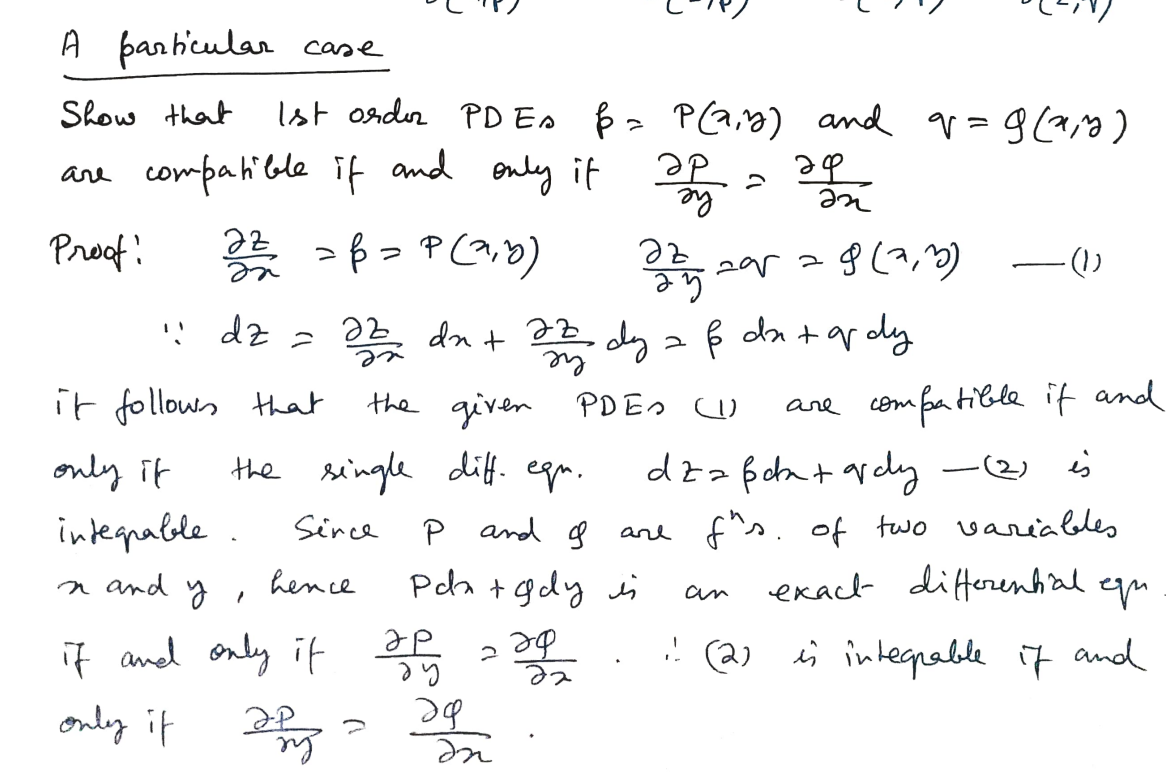 A particular case
Show that 1st order PDEs p = P(x,y) and q = Q(x,y)
are compatible if and only if ∂P/∂y = ∂Q/∂x
Proof: ∂z/∂x = p = P(x,y) ∂z/∂y = q = Q(x,y) —(1)
∵ dz = ∂z/∂x dx + ∂z/∂y dy = p dx + q dy
it follows that the given PDEs (1) are compatible if and
only if the single diff. eqn. dz = pdx + qdy —(2) is
integrable. Since P and Q are fⁿs. of two variables
x and y, hence Pdx + Qdy is an exact differential eqn.
if and only if ∂P/∂y = ∂Q/∂x . ∴ (2) is integrable if and
only if ∂P/∂y = ∂Q/∂x .